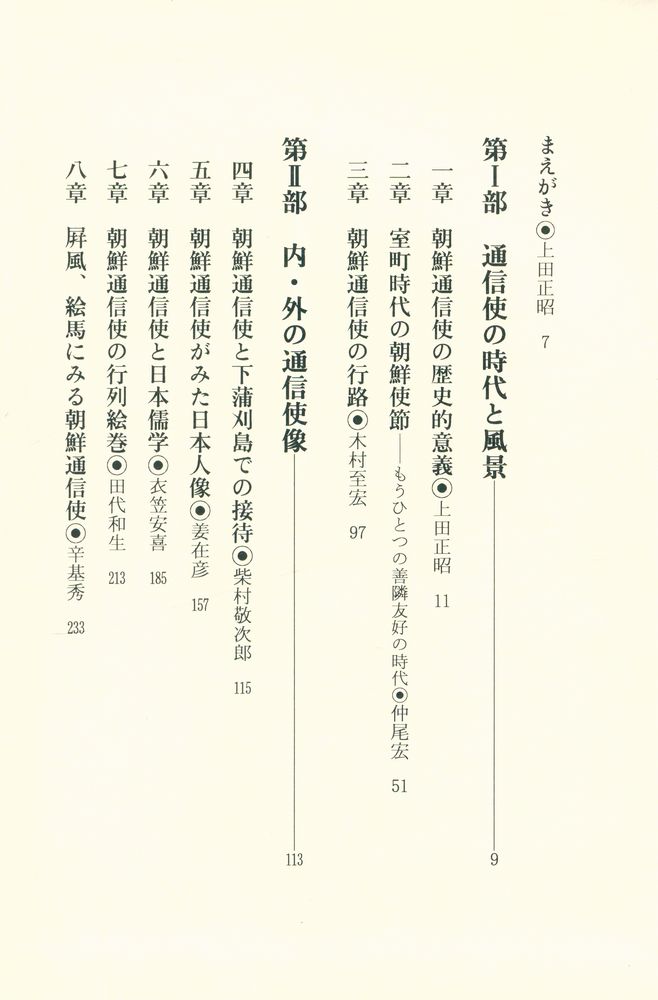 まえがき◉上田正昭 7
第Ⅰ部 通信使の時代と風景 9
一章 朝鮮通信使の歴史的意義◉上田正昭 11
二章 室町時代の朝鮮使節──もうひとつの善隣友好の時代◉仲尾宏 51
三章 朝鮮通信使の行路◉木村至宏 97
第Ⅱ部 内・外の通信使像 113
四章 朝鮮通信使と下蒲刈島での接待◉柴村敬次郎 115
五章 朝鮮通信使がみた日本人像◉姜在彦 157
六章 朝鮮通信使と日本儒学◉衣笠安喜 185
七章 朝鮮通信使の行列絵巻◉田代和生 213
八章 屛風、絵馬にみる朝鮮通信使◉辛基秀 233